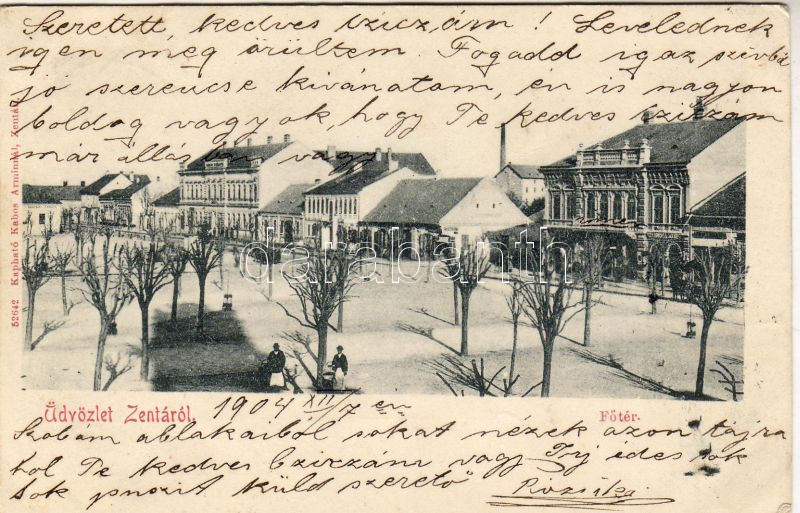 Szeretett, kedves Izicz,ám! Levelednek
igen meg örültem. Fogadd igaz szívbő
jó szerencse kivánatam, én is nagyon
boldog vagyok, hogy Te kedves Iziczám
már állásban vagy.
52642 Kapható Kabos Árminnál, Zentán
darabanth
Üdvözlet Zentáról, 1904 XII/7 én
Főtér.
Szobám ablakaiból sokat nézek azon tájra
hol Te kedves Iziczám vagy Irj édes sok
sok puszit küld szerető Rózsika